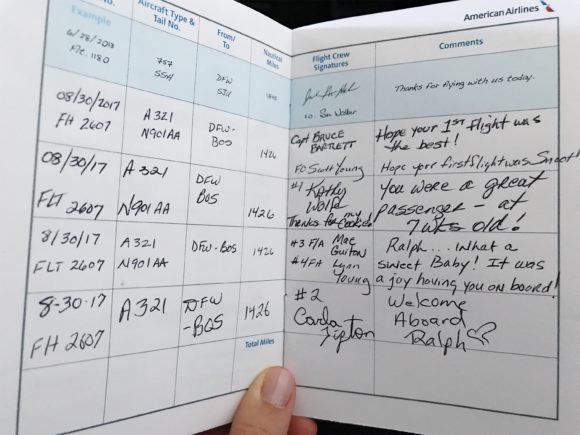 American Airlines
No.
Aircraft Type &
Tail No.
From/
To
Nautical
Miles
Flight Crew
Signatures
Comments
Example
6/28/2013
Flt. 1180
757
DFW
Thanks for flying with us today.
08/30/2017
Flt 2607
A 321
N901AA
DFW-
BOS
1426
Capt BRUCE
BARTLETT
Hope your 1ST flight was
the best!
FO Scott Young
Hope your first flight was Smooth
08/30/17
FLT 2607
A 321
N901AA
DFW
BOS
1426
#1 Kathy
Wolfe
Thanks for my cookies!
You were a great
passenger - at
7 wks old!
8/30/17
FLT 2607
A321
N901AA
DFW-BOS
1426
#3 F/A Mae
Guiton
#4 FA Lynn
Young
Ralph... What a
sweet Baby! It was
a joy having you on board!
8-30-17
Flt 2607
A321
DFW
-BOS
1426
#2
Carla
Tipton
Welcome
Aboard
Ralph
Total Miles